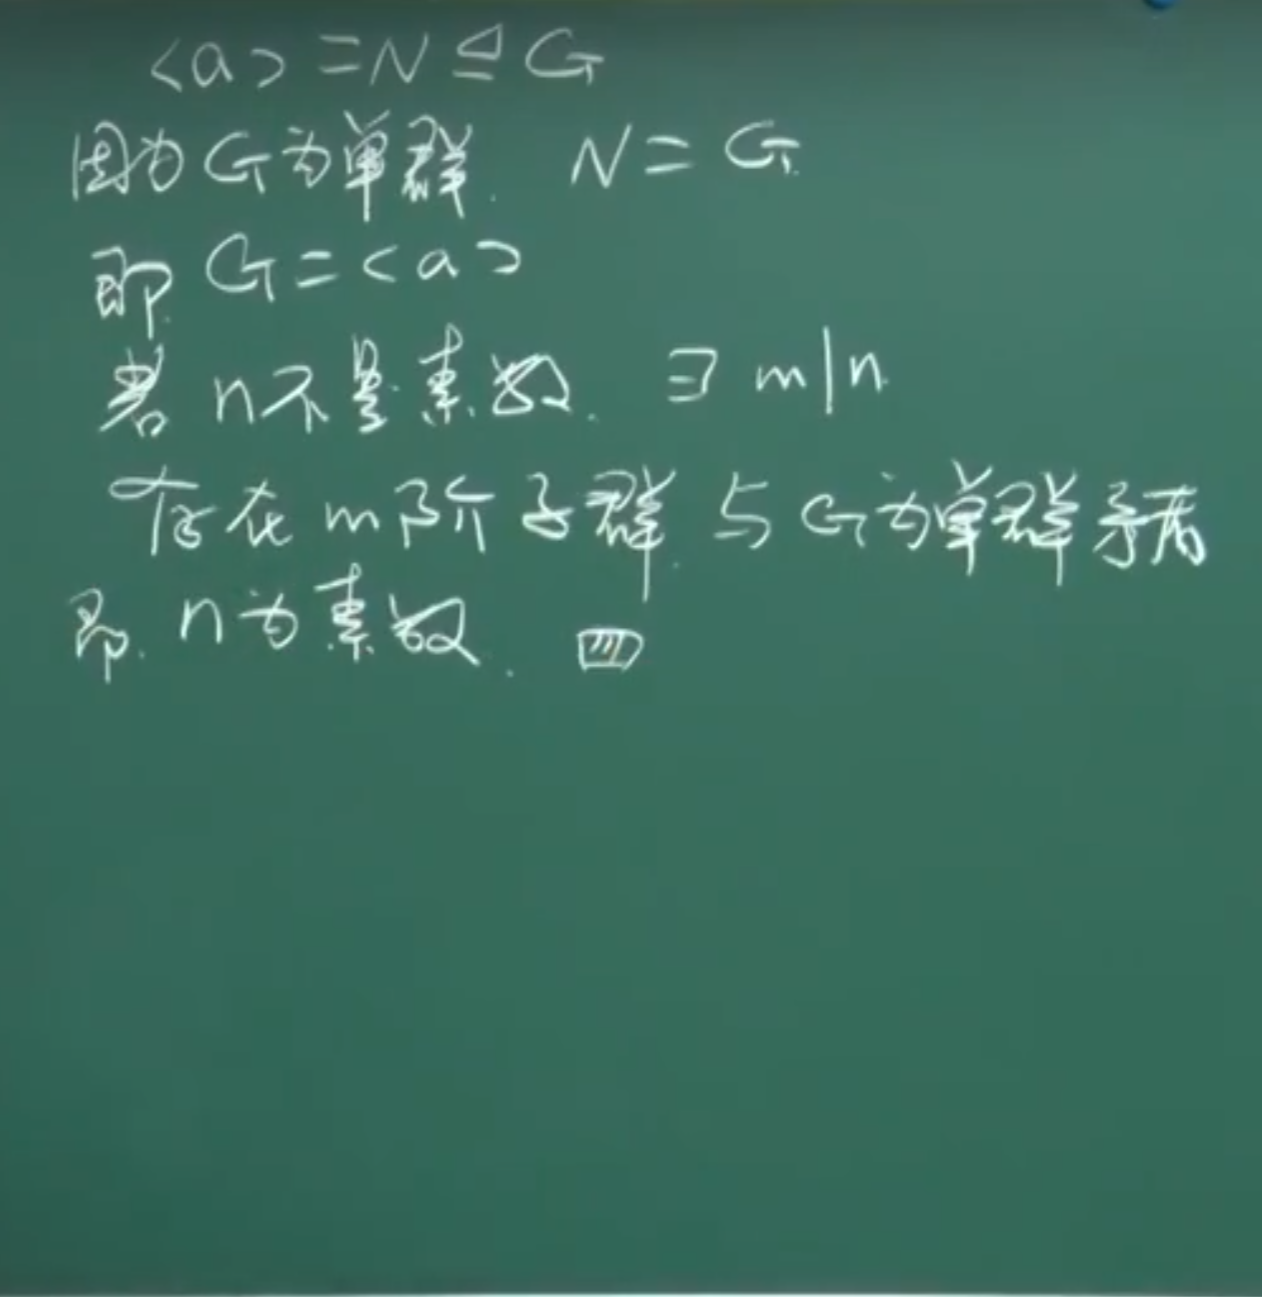 <a> = N ⊴ G
因为G为单群. N = G.
即 G = <a>
若 n不是素数. ∃ m|n.
存在m阶子群. 与G为单群矛盾
即. n为素数.